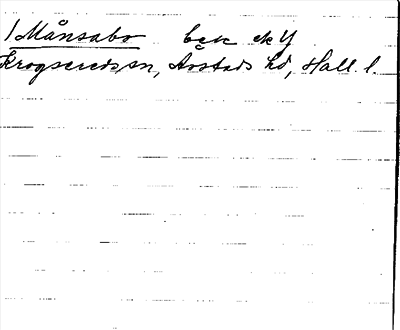 1 Månsabo bek ek Y
Krogsereds sn, Årstads hd, Hall. l.